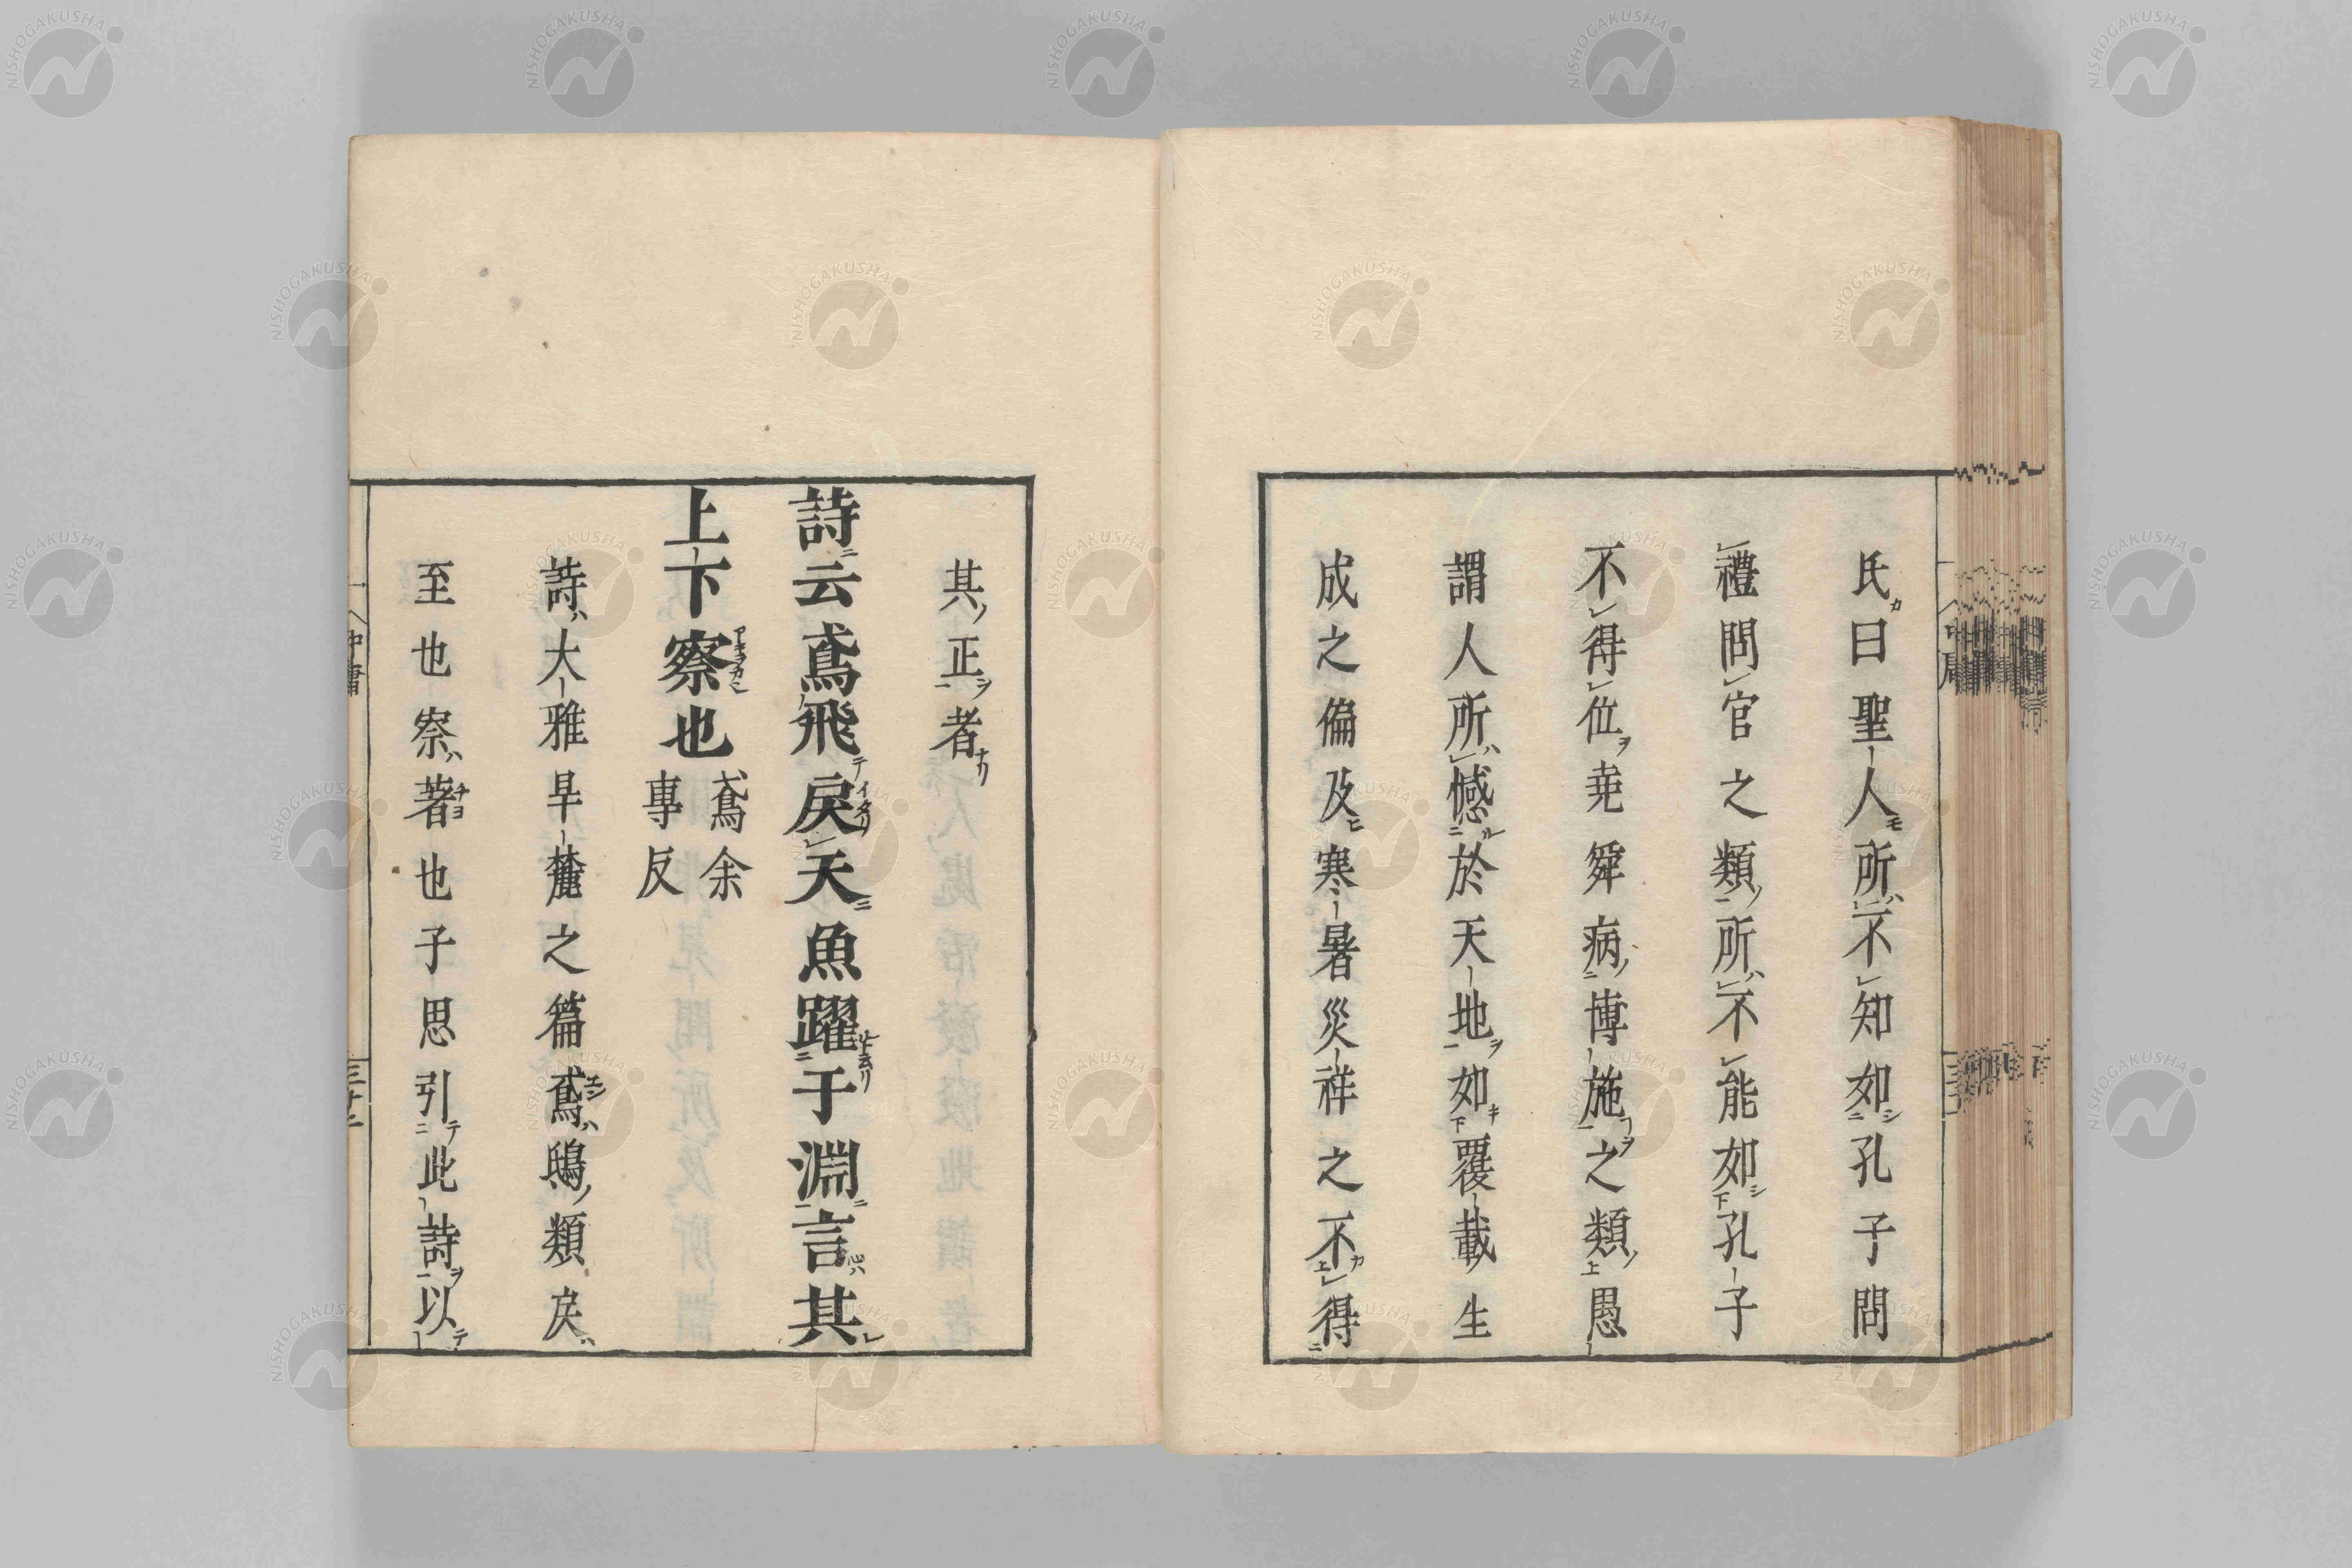 氏曰聖人所不知如孔子問
禮問官之類所不能如孔子
不得位堯舜病博施之類愚
謂人所憾於天地如覆載生
成之偏及寒暑災祥之不得
其正者
詩云鳶飛戾天魚躍于淵言其
上下察也
鳶余
專反
詩大雅旱麓之篇鳶鴟類戾
至也察著也子思引此詩以
中庸
NISHOGAKUSHA